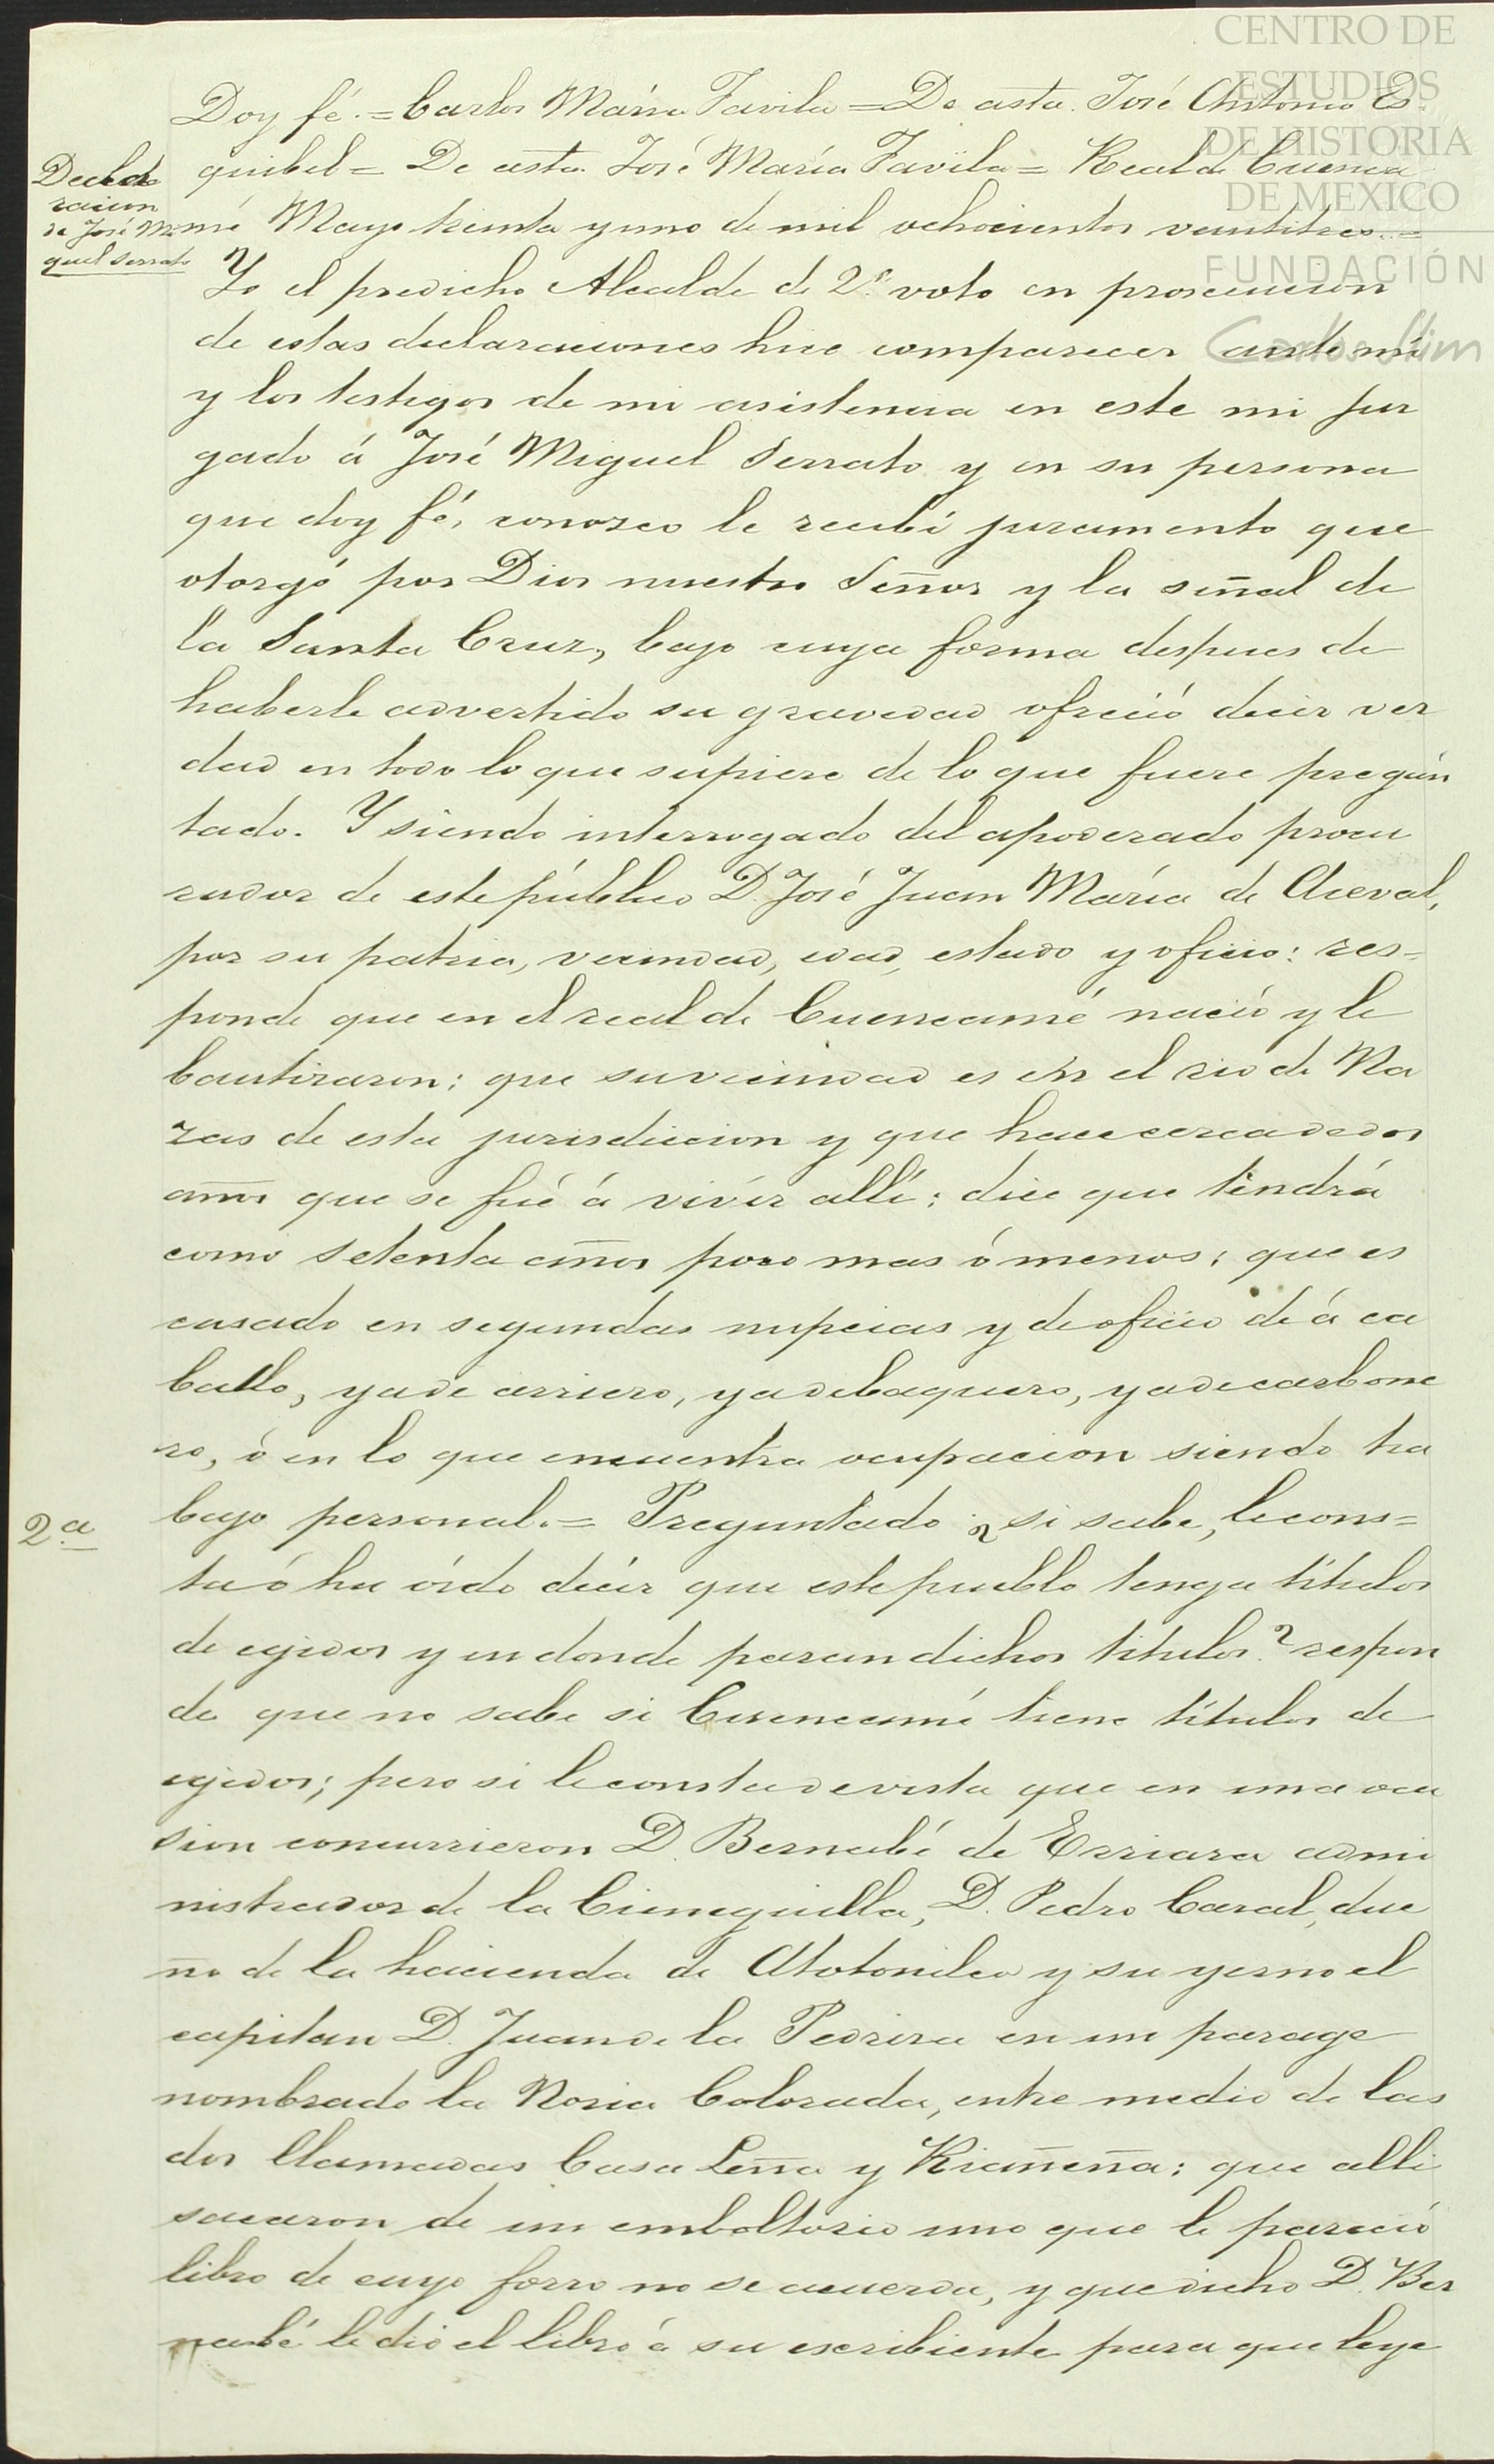 CENTRO DE
ESTUDIOS
DE HISTORIA
DE MEXICO
FUNDACIÓN
Carlos Slim
Doy fé. = Carlos María Favila = De asta. José Antonio Es-
quibel = De asta. José María Favila = Real de Cuenca
mé Mayo treinta y uno de mil ochocientos veintitres. =
Decla
racion
de José Mi
guel Serrato
Yo el predicho Alcalde de 2º voto en prosecucion
de estas declaraciones hice comparecer ante mi
y los testigos de mi asistencia en este mi juz
gado á José Miguel Serrato y en su persona
que doy fé, conozco le recibí juramento que
otorgó por Dios nuestro Señor y la señal de
la Santa Cruz, bajo cuya forma despues de
haberle advertido su gravedad ofreció decir ver
dad en todo lo que supiere de lo que fuere pregun
tado. Y siendo interrogado del apoderado procu
rador de este público D. José Juan María de Aceval,
por su patria, vecindad, edad, estado y oficio: res=
ponde que en el real de Cuencamé nació y le
bautizaron; que su vecindad es en el rio de Na
zas de esta jurisdiccion y que hace cerca de dos
años que se fué á vivir allí; dice que tendrá
como setenta años poco mas ó menos; que es
casado en segundas nupcias y de oficio de á ca
ballo, ya de arriero, ya de baquero, ya de carbone
ro, ó en lo que encuentra ocupacion siendo tra
bajo personal. = Preguntado ¿si sabe, le cons=
2.a
ta ó ha oído decir que este pueblo tenga títulos
de egidos y en donde paran dichos titulos? respon
de que no sabe si Cuencamé tiene títulos de
egidos; pero si le consta de vista que en una oca
sion concurrieron D. Bernabé de Erriara admi
nistrador de la Cieneguilla, D. Pedro Caral, due
ño de la hacienda de Atotonilco y su yerno el
capitan D. Juan de la Pedriza en un parage
nombrado la Noria Colorada, entre medio de las
dos llamadas Casa Leña y Riañeña; que alli
sacaron de un emboltorio uno que le pareció
libro de cuyo forro no se acuerda, y que dicho D. Ber
nabé le dió el libro á su escribiente para que leye